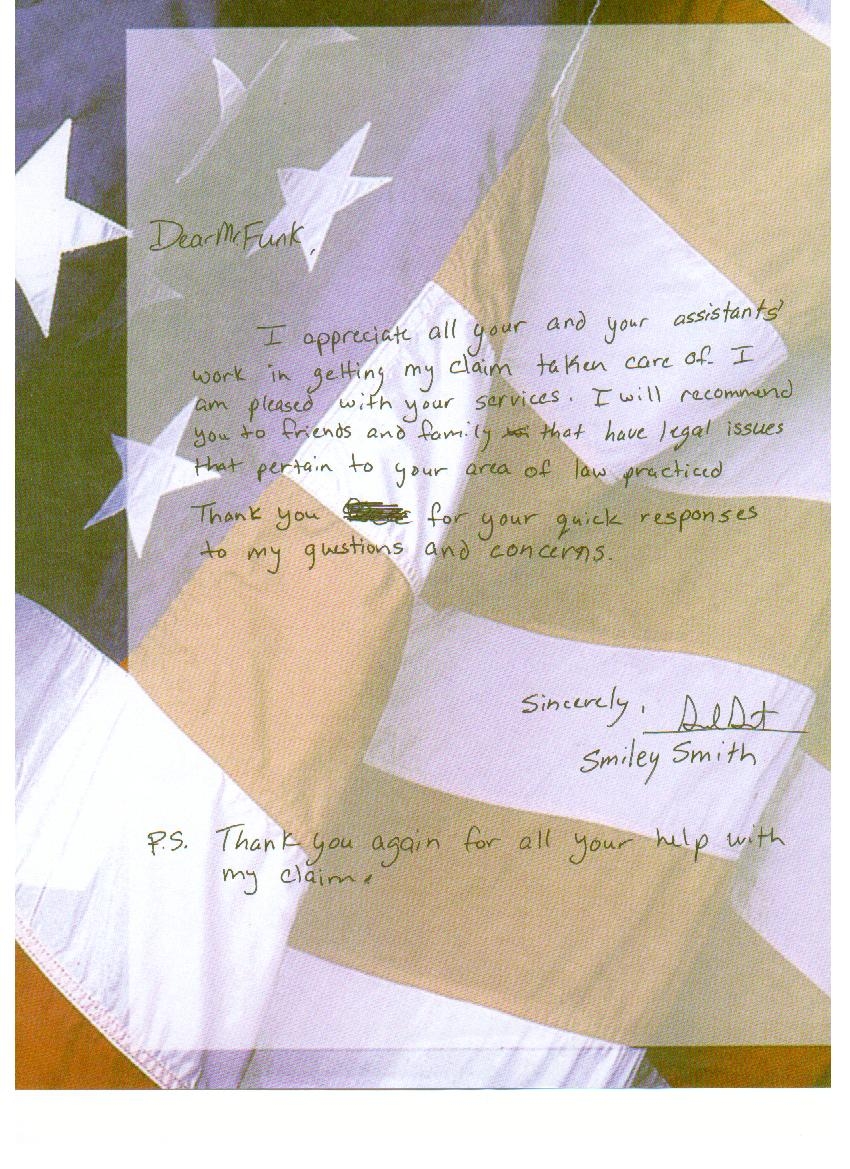 Dear Mr Funk,
I appreciate all your and your assistants'
work in getting my claim taken care of. I
am pleased with your services. I will recommend
you to friends and family that have legal issues
that pertain to your area of law practiced
Thank you for your quick responses
to my questions and concerns.
Sincerely,
Smiley Smith
P.S. Thank you again for all your help with
my claim.